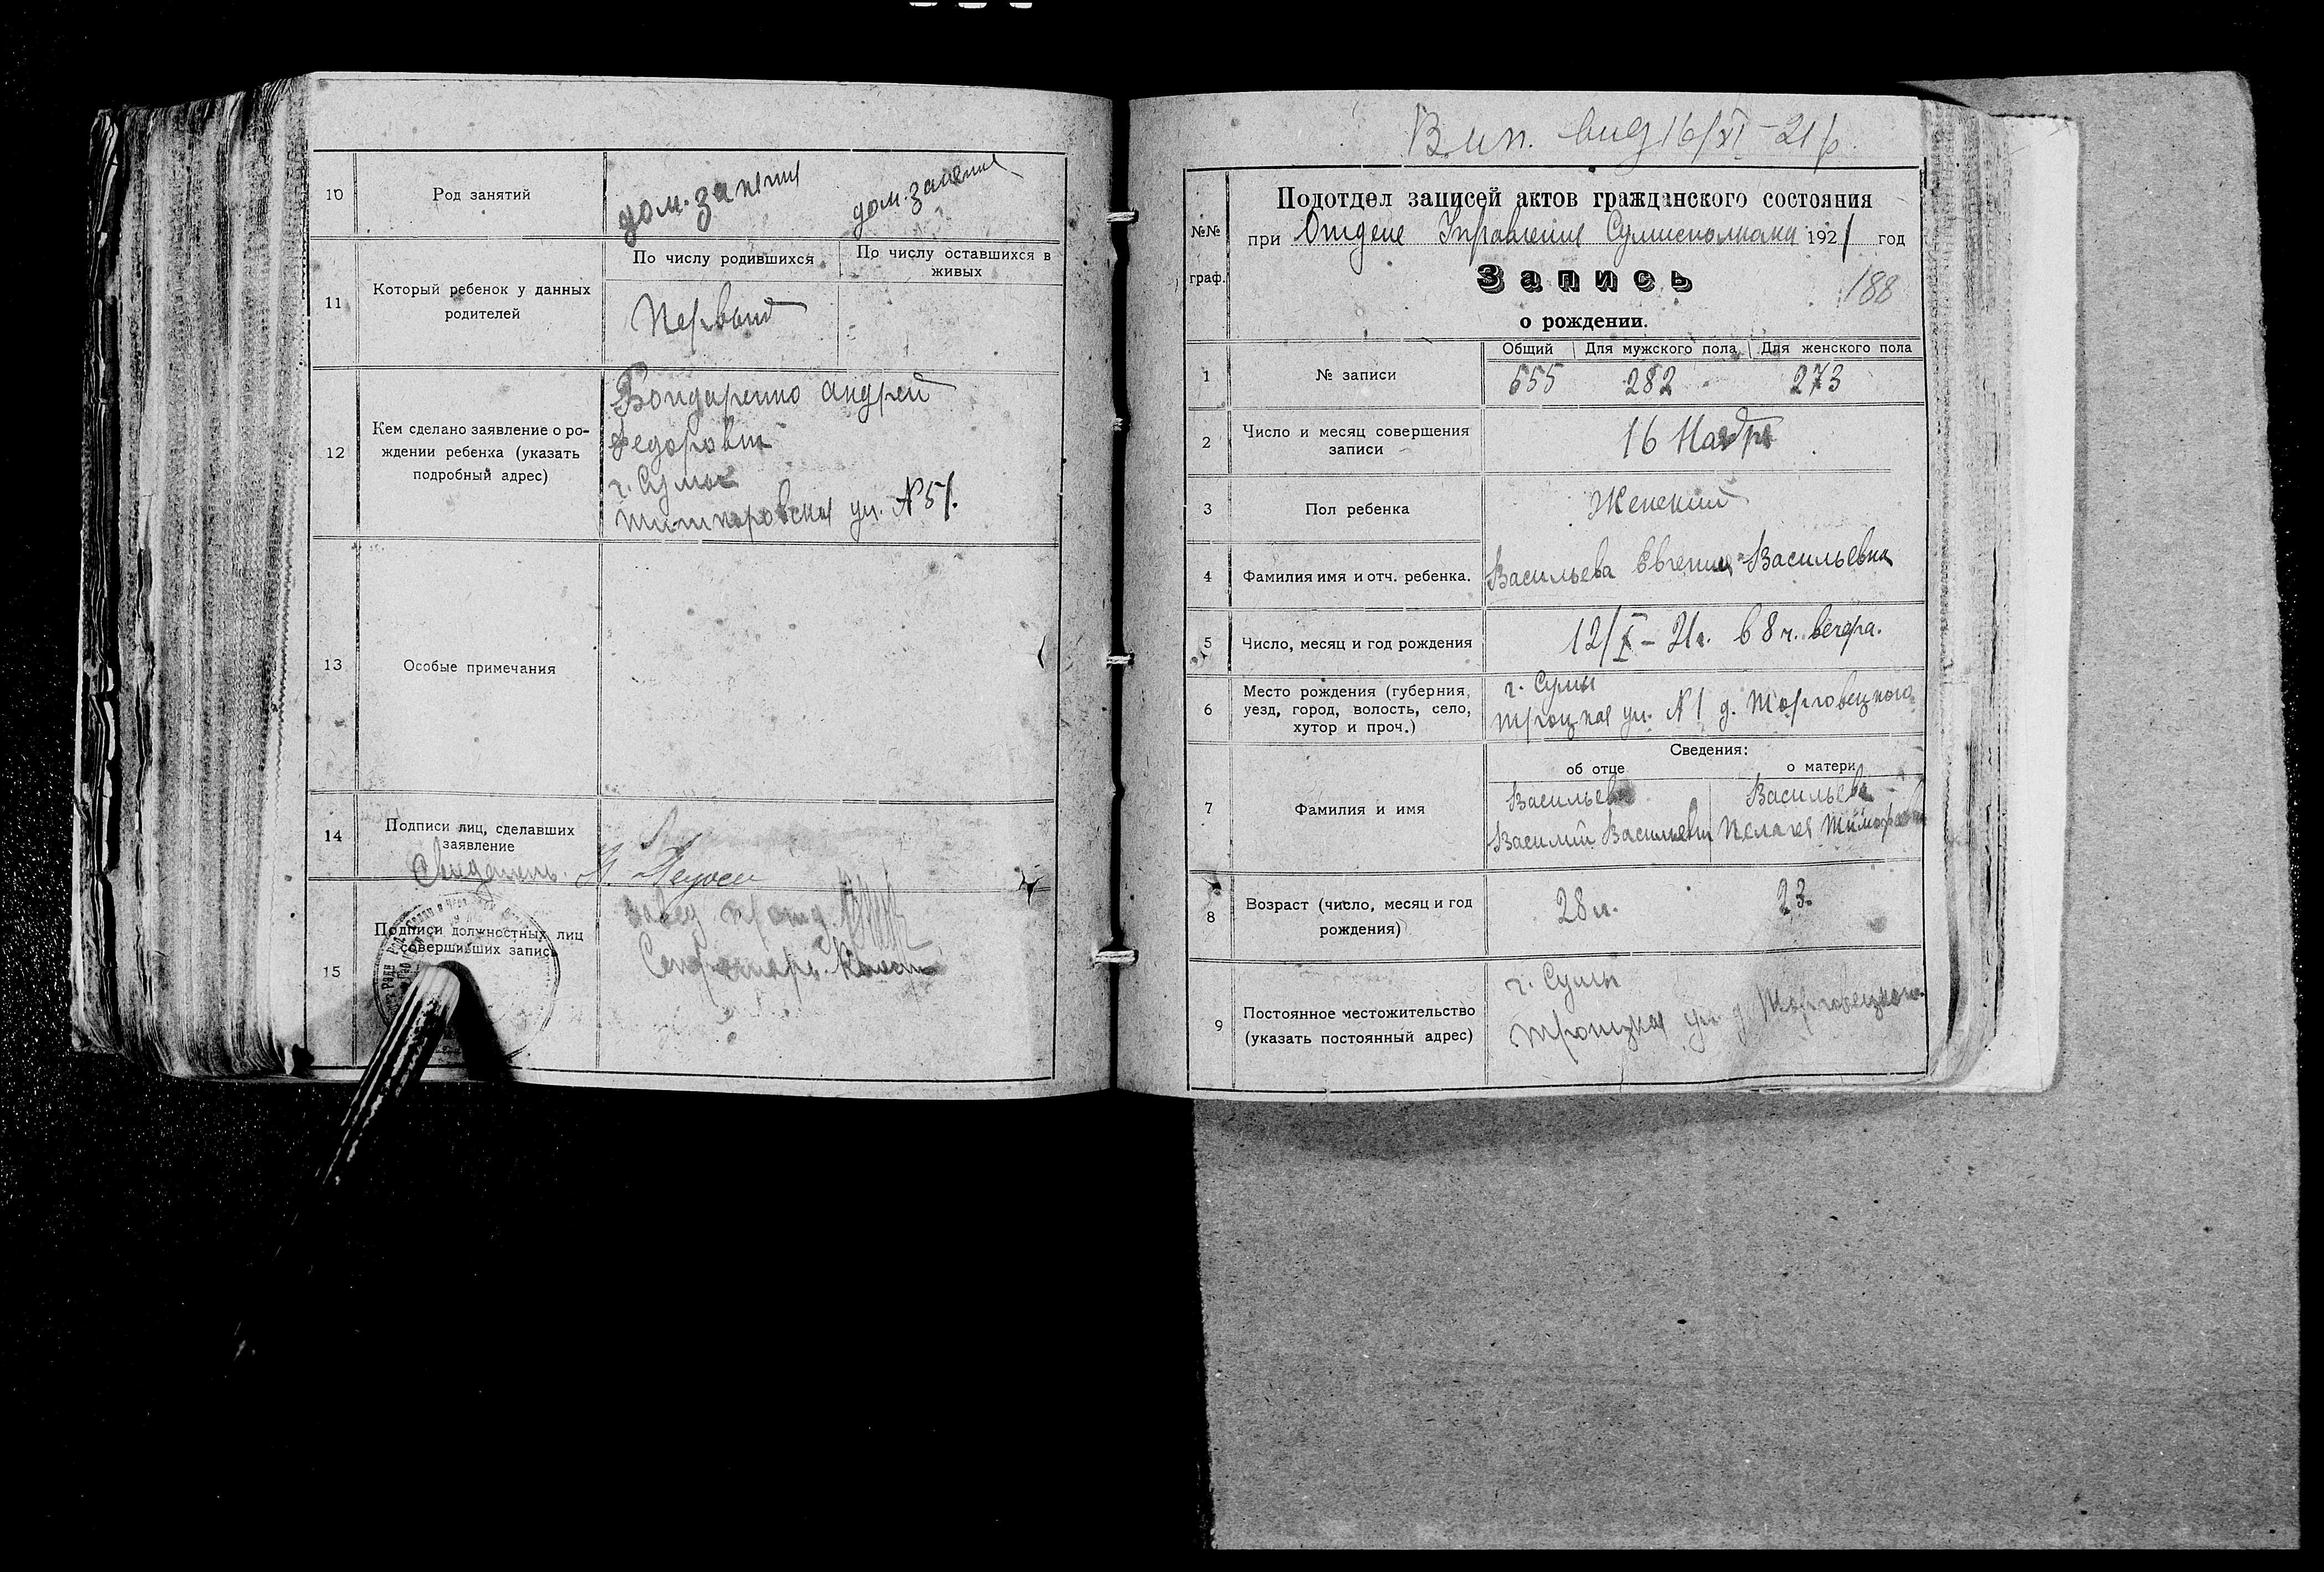 10
Род занятий
дом. занятия
дом. занятия
11
Который ребенок у данных
родителей
По числу родившихся
По числу оставшихся в
живых
Первый
12
Кем сделано заявление о ро-
ждении ребенка (указать
подробный адрес)
Бондаренко Андрей
Федорович
г. Сумы
ул. № 51.
13
Особые примечания
14
Подписи лиц, сделавших
заявление
Свидетель.
15
Подписи должностных лиц
совершивших запись
Завед
Секретарь
Вип. вид 16/XI-21 р.
№№
граф.
Подотдел записей актов гражданского состояния
при Отделе Управления Сумисполкома 1921 год
Запись
188
о рождении.
1
№ записи
Общий
Для мужского пола
Для женского пола
555
282
273
2
Число и месяц совершения
записи
16 Ноября
3
Пол ребенка
Женский
4
Фамилия имя и отч. ребенка.
Васильева Евгения Васильевна
5
Число, месяц и год рождения
12/X - 21г. в 8 ч. вечера.
6
Место рождения (губерния,
уезд, город, волость, село,
хутор и проч.)
г. Сумы
Троцкая ул. № 1 д. Торговецкого
Сведения:
об отце
о матери
7
Фамилия и имя
Васильев
Василий Васильевич
Васильева
Пелагея
8
Возраст (число, месяц и год
рождения)
28 л.
23.
9
Постоянное местожительство
(указать постоянный адрес)
г. Сумы
Троицкая ул. д. Торговецкого.